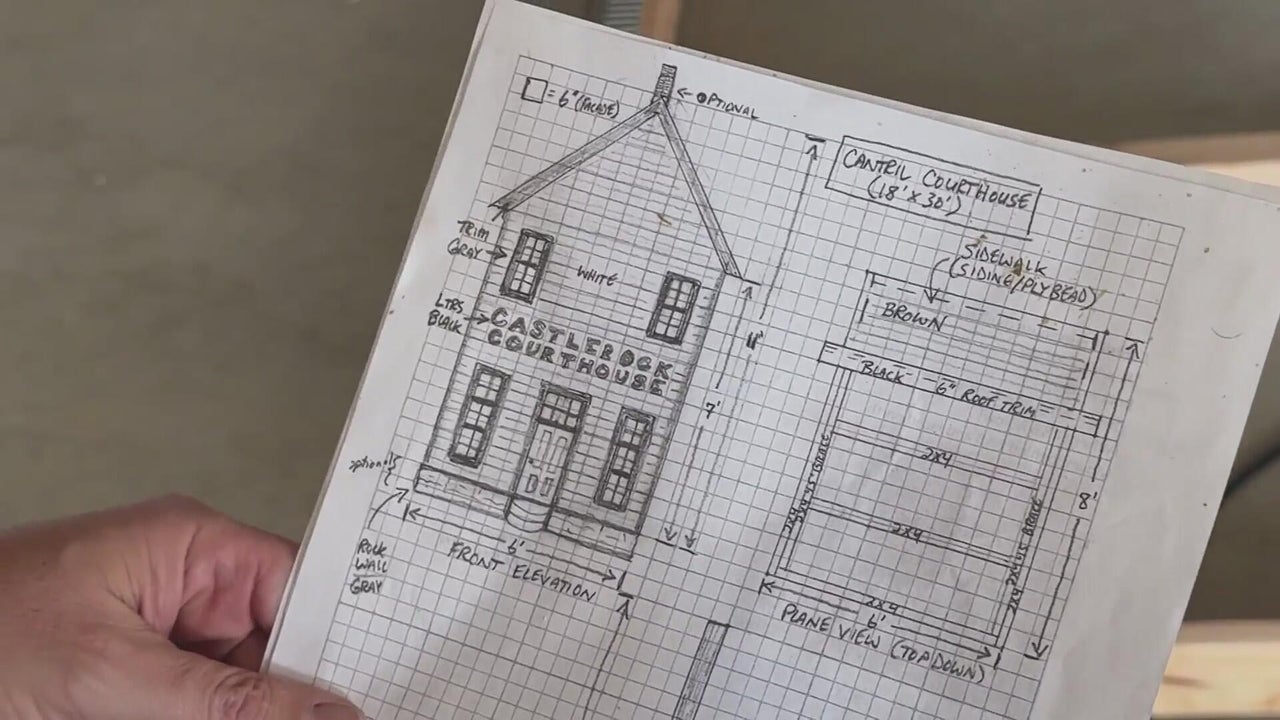 = 6" (FACADE)
OPTIONAL
TRIM
GRAY
WHITE
LTRS.
BLACK
CASTLEROCK
COURTHOUSE
optional
ROCK
WALL
GRAY
6'
FRONT ELEVATION
11'
7'
CANTRIL COURTHOUSE
(18' X 30')
SIDEWALK
(SIDING/PLYBEAD)
BROWN
BLACK - 6" ROOF TRIM
2X4
2X4
2X4
2X4 45 BRACE
2X4 45 BRACE
8'
2X4
6'
PLANE VIEW (TOP DOWN)